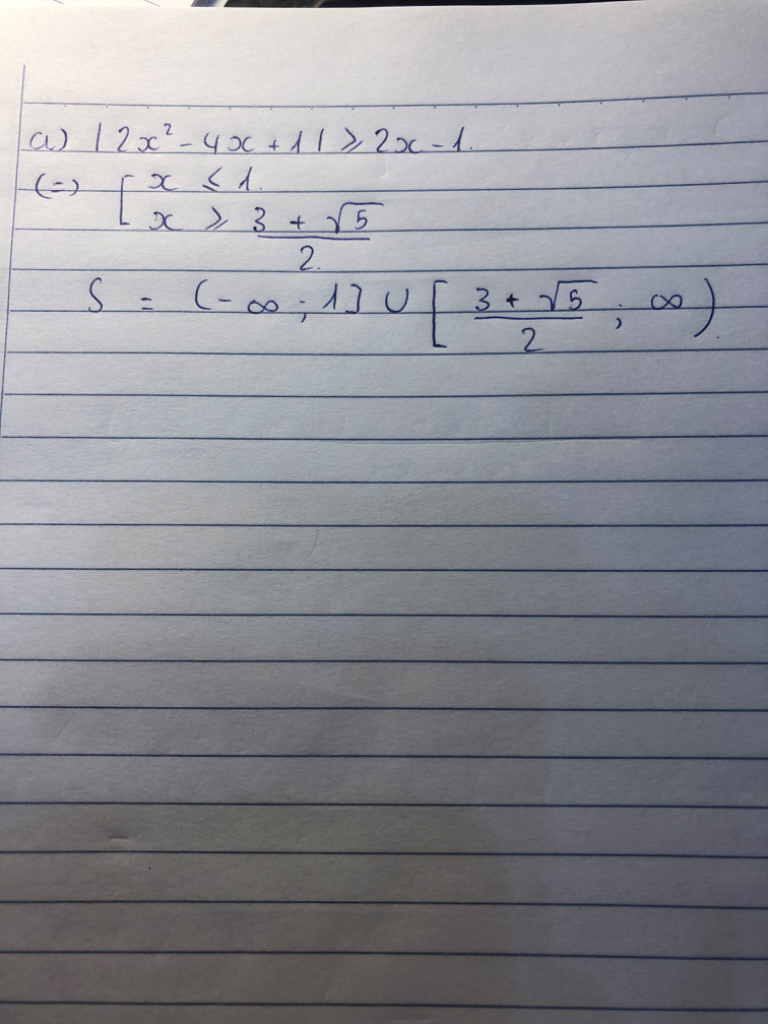 a) |2x² - 4x + 1| ⩾ 2x - 1.
(=) [ x ⩽ 1.
x ⩾ (3 + √5)/2.
S = (-∞; 1] ∪ [(3 + √5)/2; ∞).